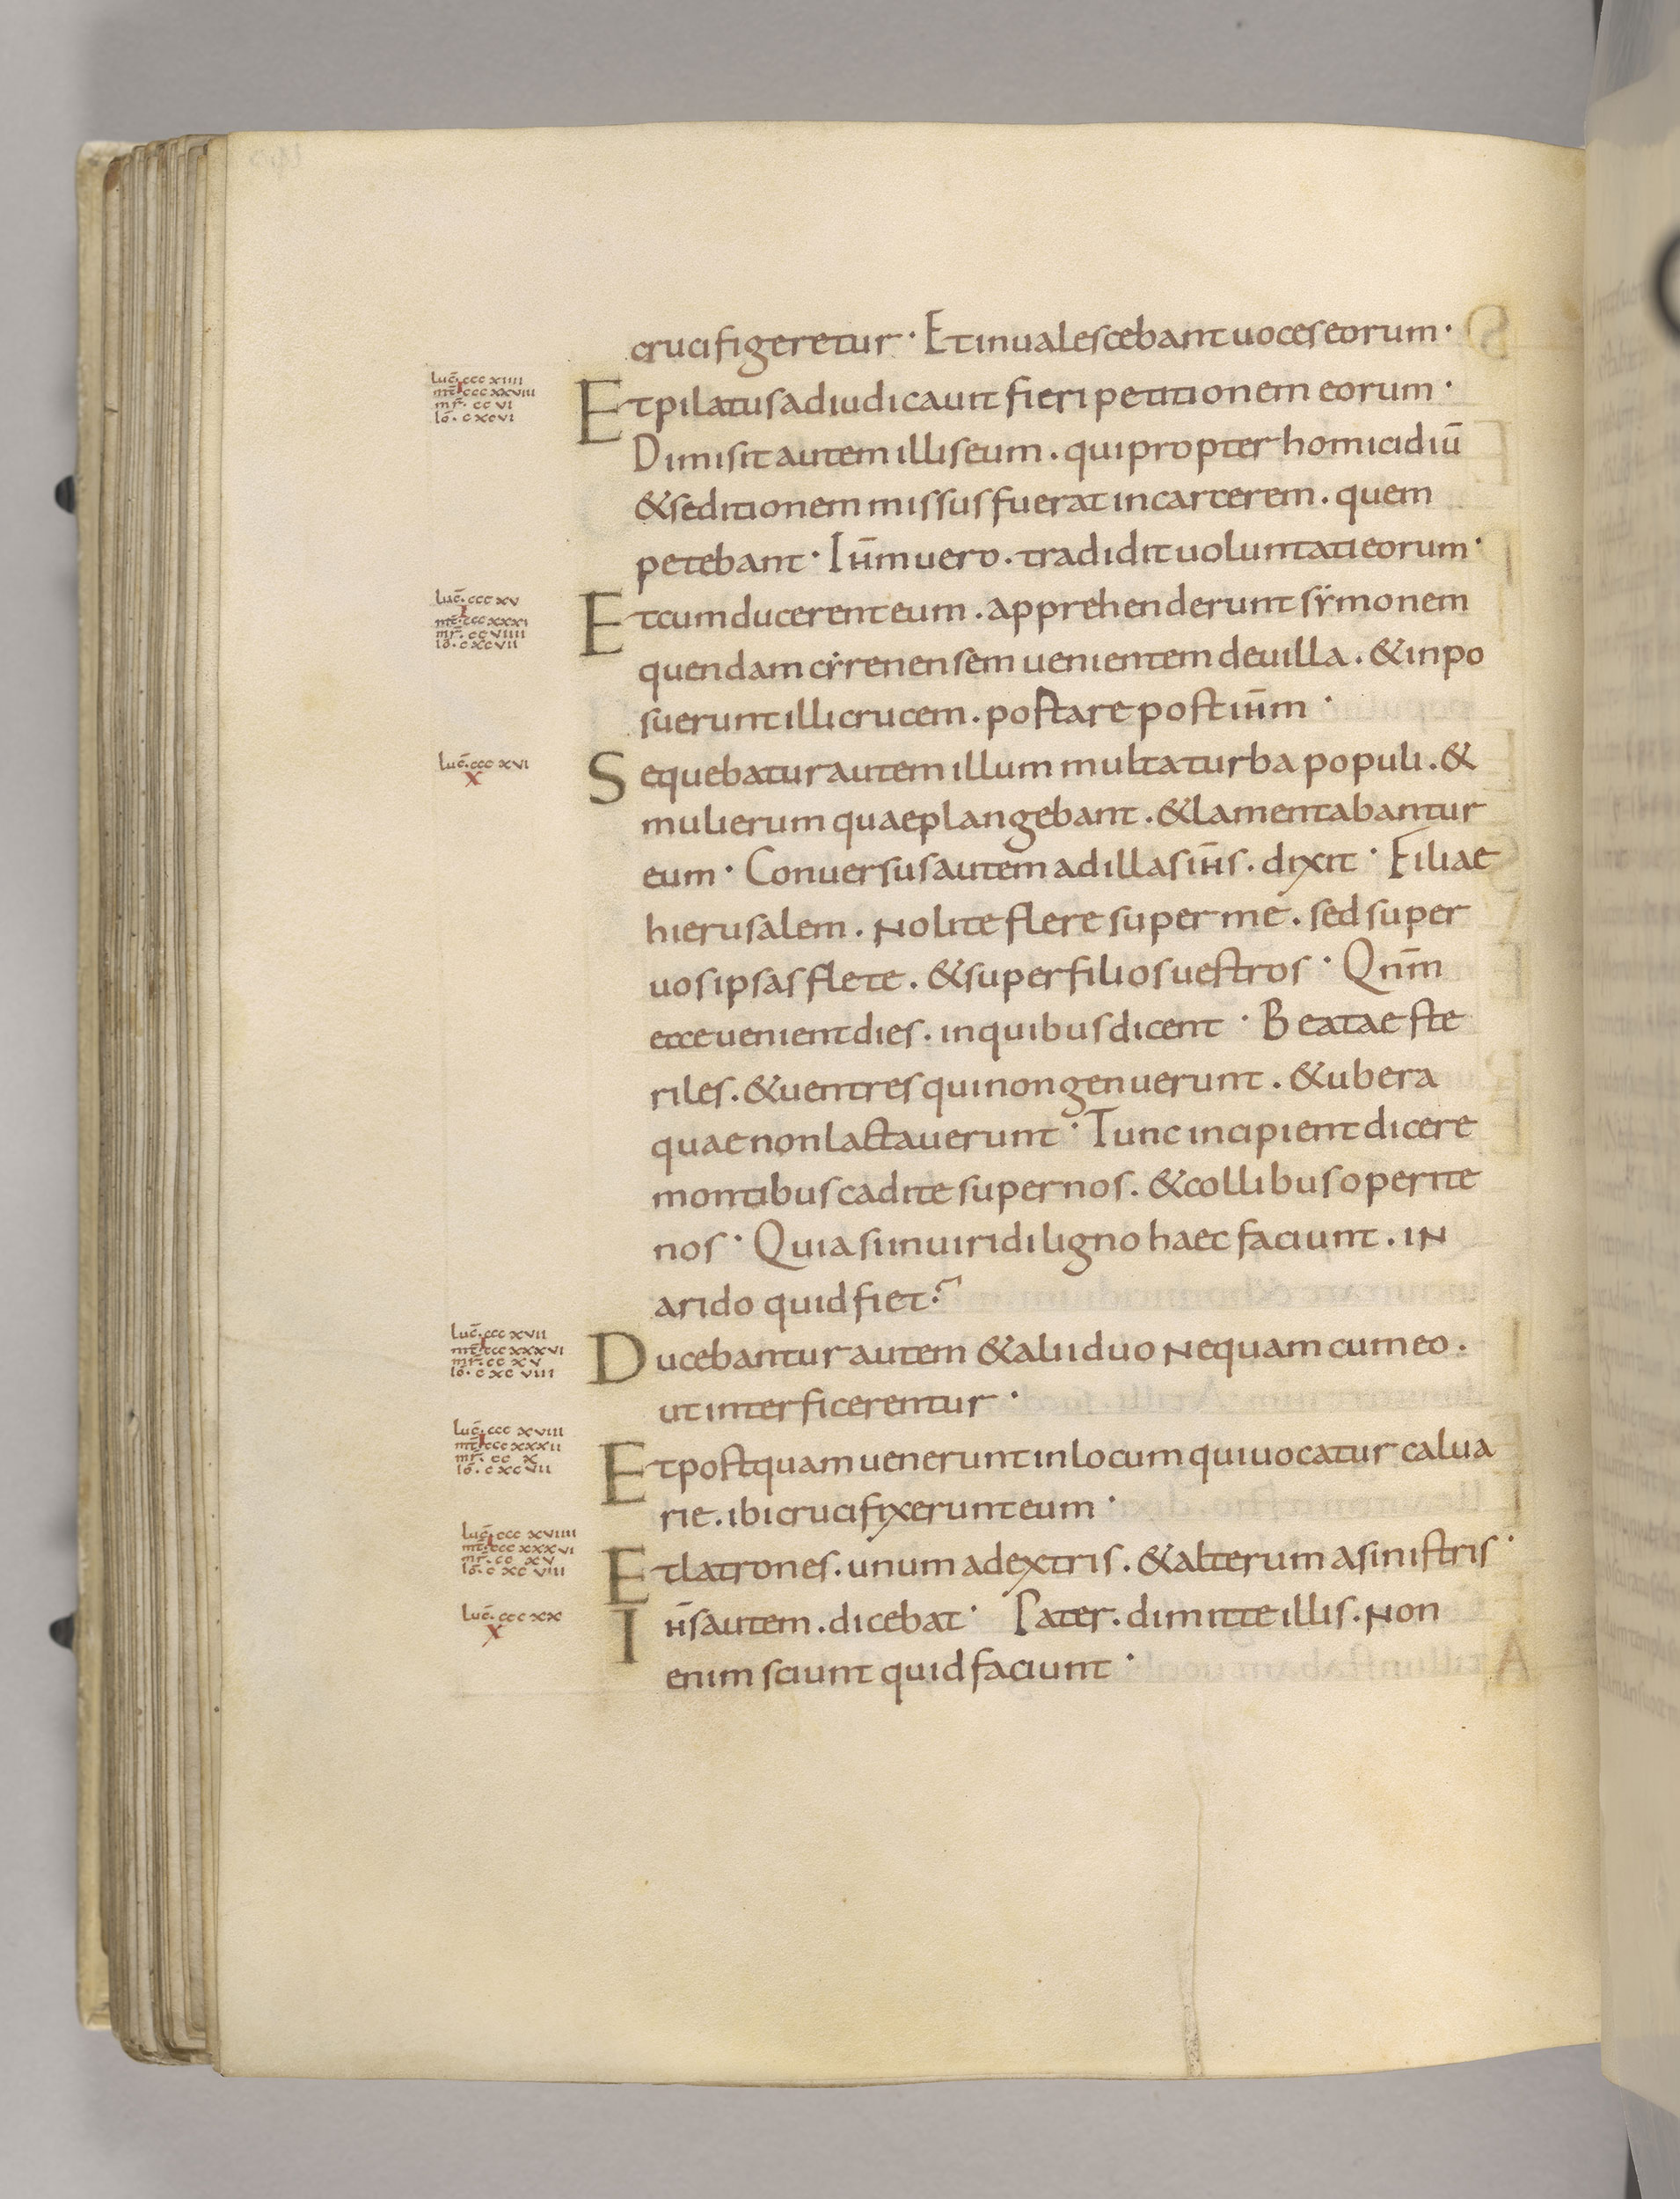 crucifigeretur · Et inualescebant uoces eorum ·
Luc̄. ccc xiiii
mt̄. ccc xxviii
mr̄. cc vi
Iō. c xcvi
Et pilatus adiudicauit fieri petitionem eorum ·
Dimisit autem illis eum . qui propter homicidiū
& seditionem missus fuerat in carcerem . quem
petebant · Ih̄m uero . tradidit uoluntati eorum ·
Luc̄. ccc xv
I
mt̄. ccc xxxi
mr̄. cc viiii
Iō. c xcvii
Et cum ducerent eum . apprehenderunt sẏmonem
quendam cẏrenensem uenientem de uilla . & inpo
suerunt illi crucem . postare post ih̄m ·
Luc̄. ccc xvi
x
Sequebatur autem illum multa turba populi . &
mulierum quae plangebant . & lamentabantur
eum · Conuersus autem ad illas ih̄s . dixit · Filiae
hierusalem . Nolite flere super me . sed super
uos ipsas flete . & super filios uestros · Qnm̄
ecce uenient dies . in quibus dicent · Beatae ste
riles . & uentres qui non genuerunt . & ubera
quae non lactauerunt · Tunc incipient dicere
montibus cadite super nos . & collibus operite
nos · Quia si in uiridi ligno haec faciunt . IN
arido quid fiet ?
Luc̄. ccc xvii
mt̄. ccc xxxvi
mr̄. cc xv
Iō. c xc viii
Ducebantur autem & alii duo Nequam cum eo .
ut interficerentur ·
Luc̄. ccc xviii
mt̄. ccc xxxii
mr̄. cc x
Iō. c xc vii
Et postquam uenerunt in locum qui uocatur calua
rie . ibi crucifixerunt eum ·
Luc̄. ccc xviiii
mt̄. ccc xxxvi
mr̄. cc xv
Iō. c xc viii
Et latrones . unum a dextris . & alterum a sinistris ·
Luc̄. ccc xx
x
Ih̄s autem . dicebat · Pater . dimitte illis . Non
enim sciunt quid faciunt ·